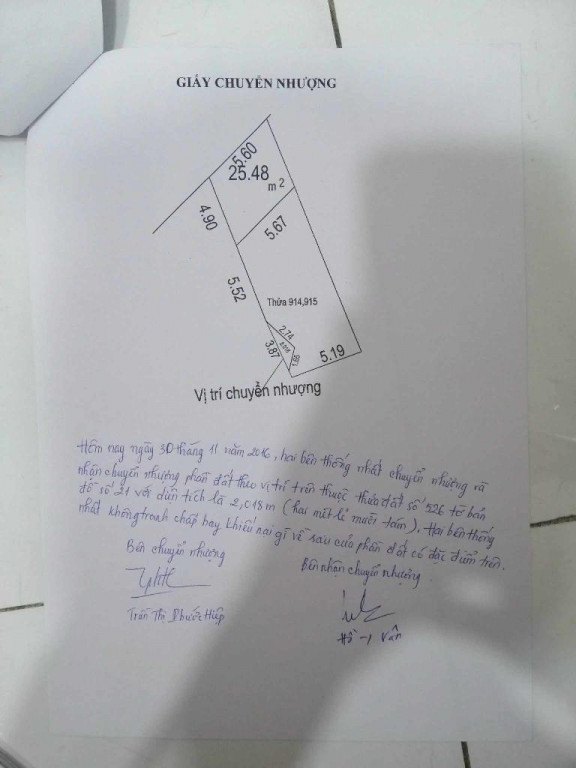 GIẤY CHUYỂN NHƯỢNG
5.60
25.48
m 2
4.90
5.67
5.52
Thửa 914,915
2.74
3.87
5.19
Vị trí chuyển nhượng
Hôm nay ngày 30 tháng 11 năm 2016, hai bên thống nhất chuyển nhượng và
nhận chuyển nhượng phần đất theo vị trí trên thuộc thửa đất số 526 tờ bản
đồ số 21 với diện tích là 2,018m (hai mét lẻ mười tám). Hai bên thống
nhất không tranh chấp hay khiếu nại gì về sau của phần đất có đặc điểm trên.
Bên chuyển nhượng
Bên nhận chuyển nhượng.
Trần Thị Phước Hiệp
Vân